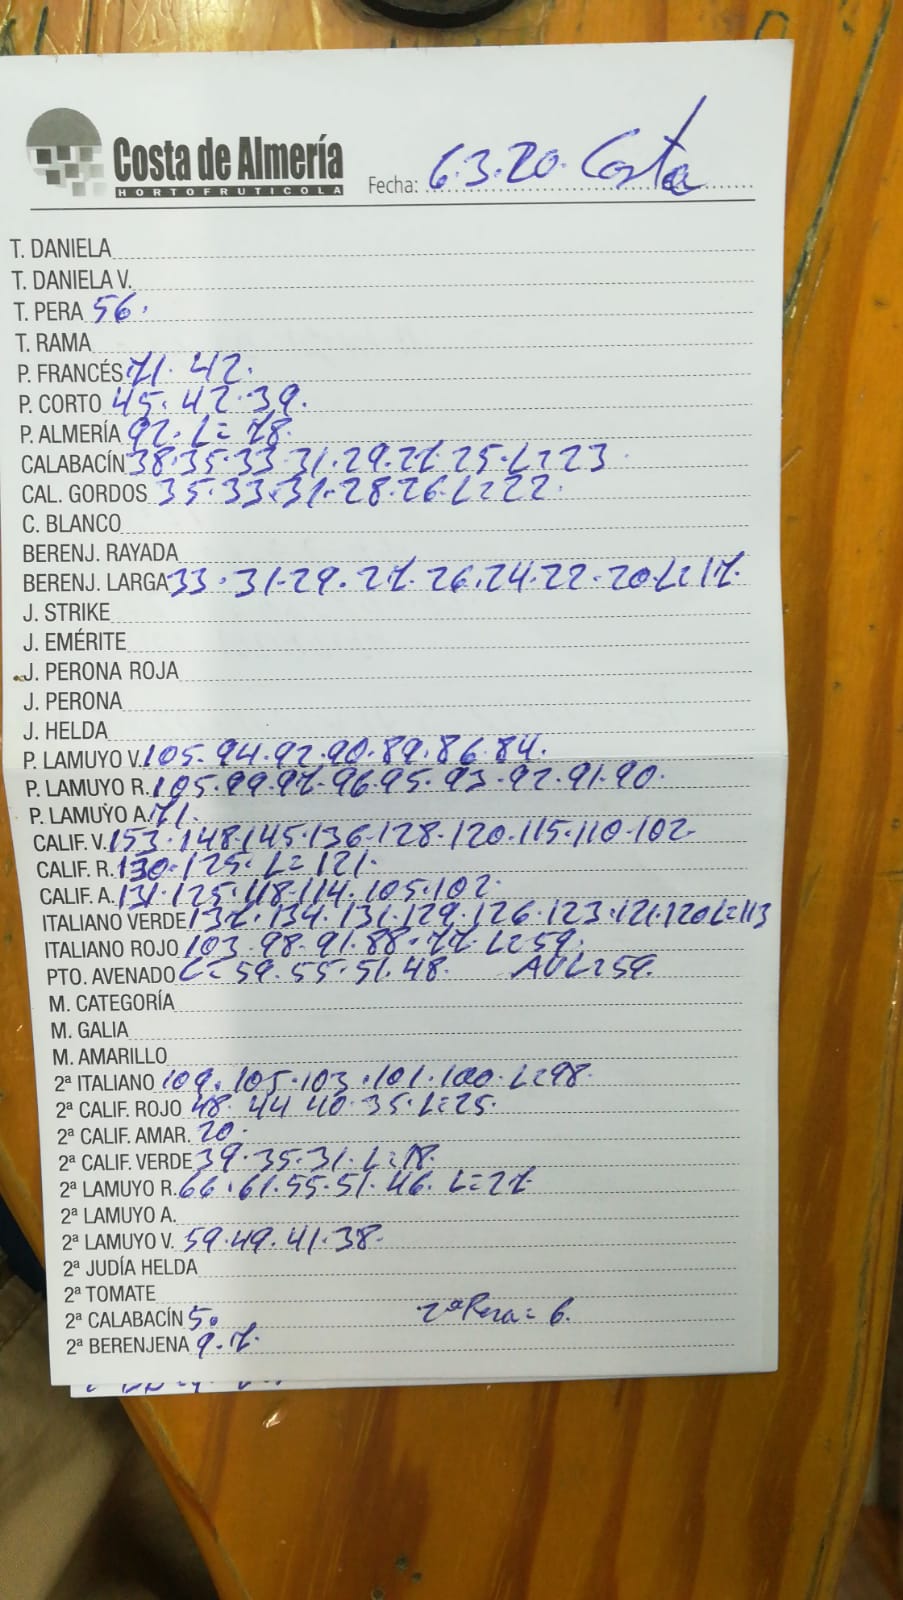 Costa de Almería
HORTOFRUTICOLA
Fecha: 6.3.20. Costa
T. DANIELA
T. DANIELA V.
T. PERA 56.
T. RAMA
P. FRANCÉS 71. 42.
P. CORTO 45. 42. 39.
P. ALMERÍA 92. L= 78.
CALABACÍN 38. 35. 33. 31. 29. 27. 25. L= 23.
CAL. GORDOS 35. 33. 31. 28. 26. L= 22.
C. BLANCO
BERENJ. RAYADA
BERENJ. LARGA 33. 31. 29. 27. 26. 24. 22. 20. L= 17.
J. STRIKE
J. EMÉRITE
J. PERONA ROJA
J. PERONA
J. HELDA
P. LAMUYO V. 105. 94. 92. 90. 89. 86. 84.
P. LAMUYO R. 105. 99. 97. 96. 95. 93. 92. 91. 90.
P. LAMUYO A. 71.
CALIF. V. 153. 148. 145. 136. 128. 120. 115. 110. 102.
CALIF. R. 130. 125. L= 121.
CALIF. A. 131. 125. 118. 114. 105. 102.
ITALIANO VERDE 137. 134. 131. 129. 126. 123. 121. 120 L= 113
ITALIANO ROJO 103. 98. 91. 88. 77. L= 59.
PTO. AVENADO L= 59. 55. 51. 48. AVL= 59.
M. CATEGORÍA
M. GALIA
M. AMARILLO
2ª ITALIANO 109. 105. 103. 101. 100. L= 98.
2ª CALIF. ROJO 48. 44 40. 35. L= 25.
2ª CALIF. AMAR. 20.
2ª CALIF. VERDE 39. 35. 31. L= 18.
2ª LAMUYO R. 66. 61. 55. 51. 46. L= 27.
2ª LAMUYO A.
2ª LAMUYO V. 59. 49. 41. 38.
2ª JUDÍA HELDA
2ª TOMATE
2ª CALABACÍN 5. 2ª Pera = 6.
2ª BERENJENA 9. 7.